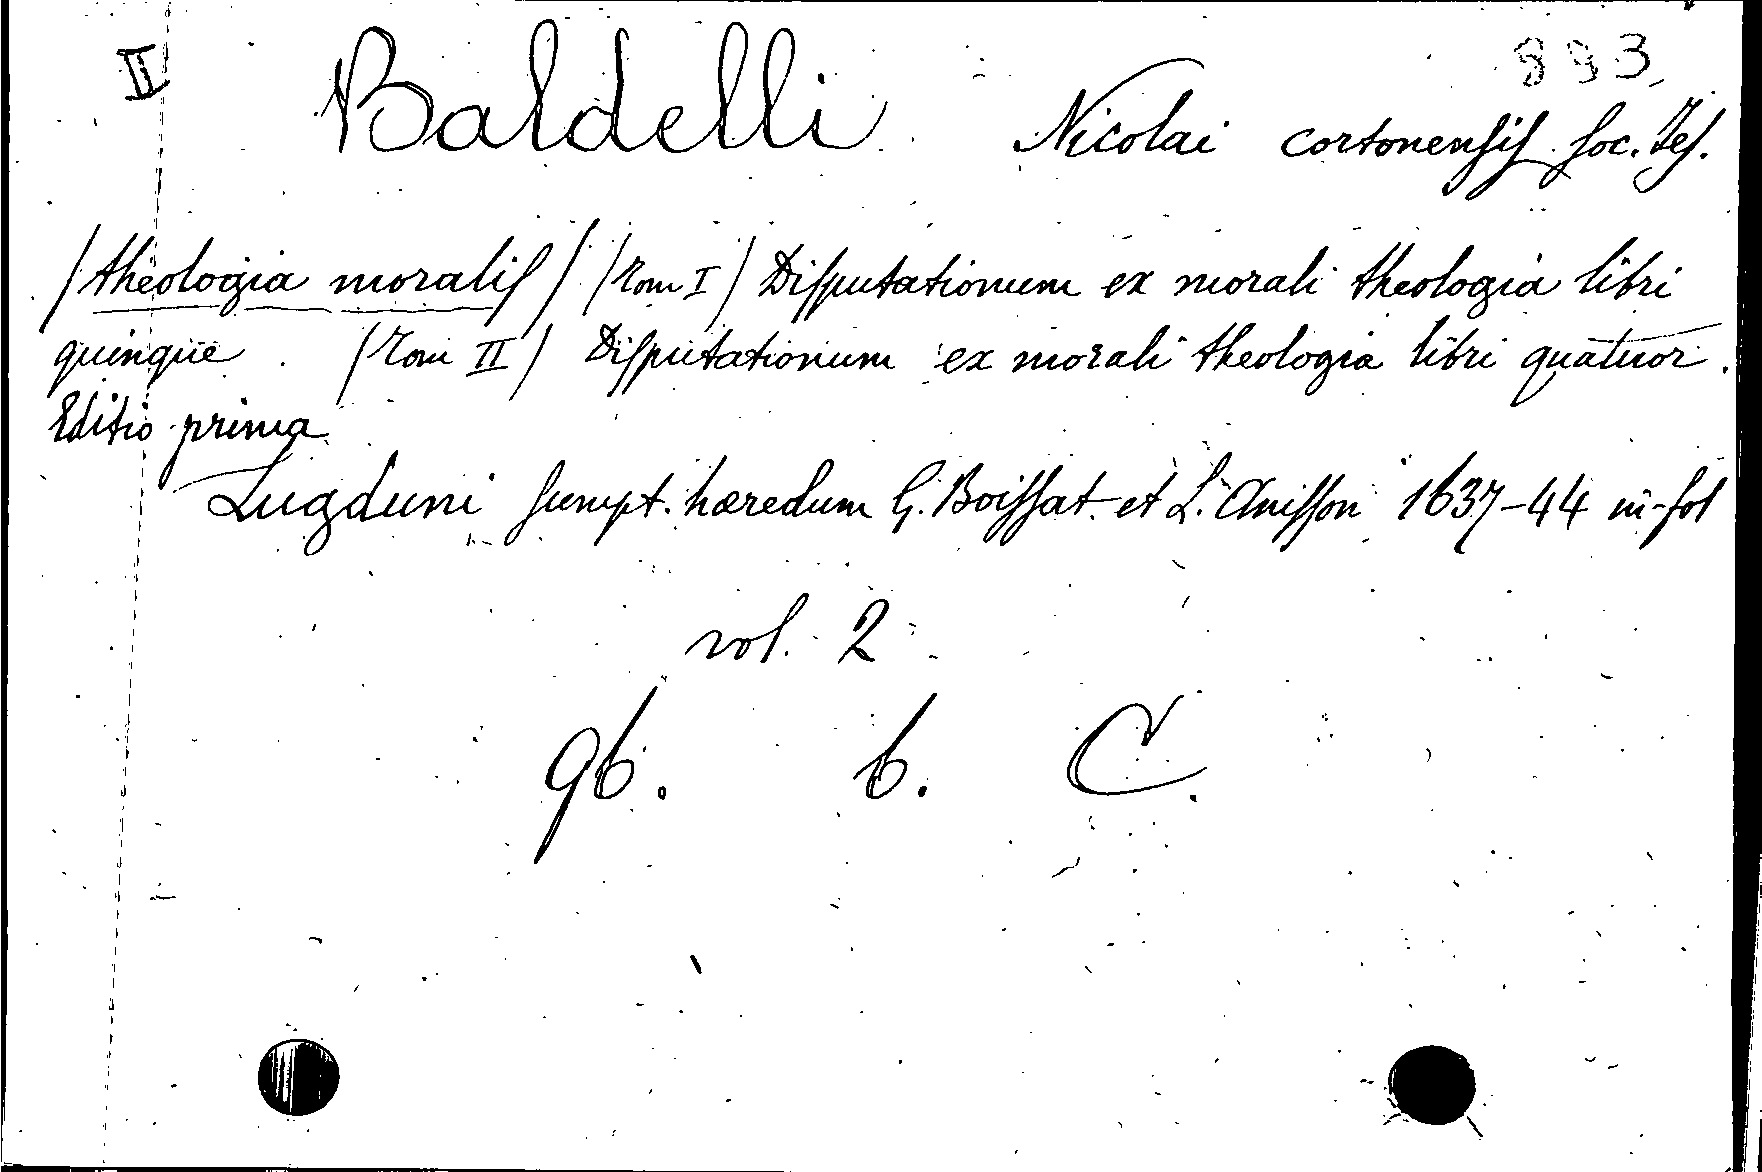 II Baldelli 893
Nicolai cortonensis soc. Jes.
/theologia moralis/ (Tom I) Disputationum ex morali theologia libri
quinque. (Tom II) Disputationum ex morali theologia libri quatuor.
Editio prima
Lugduni sumpt. hæredum G. Boissat et L. Anisson 1637-44 in-fol
vol. 2
96. b. C.